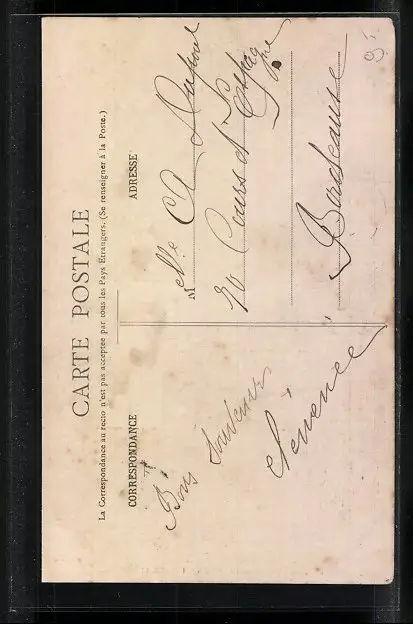 CARTE POSTALE
La Correspondance au recto n'est pas acceptée par tous les Pays Étrangers. (Se renseigner à la Poste.)
CORRESPONDANCE
Bons Souvenirs
ADRESSE
M elle A Dupont
20 Cours d'Espagne
Bordeaux